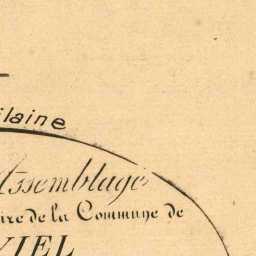 ilaine
Assemblage
ire de la Commune de
VIEL